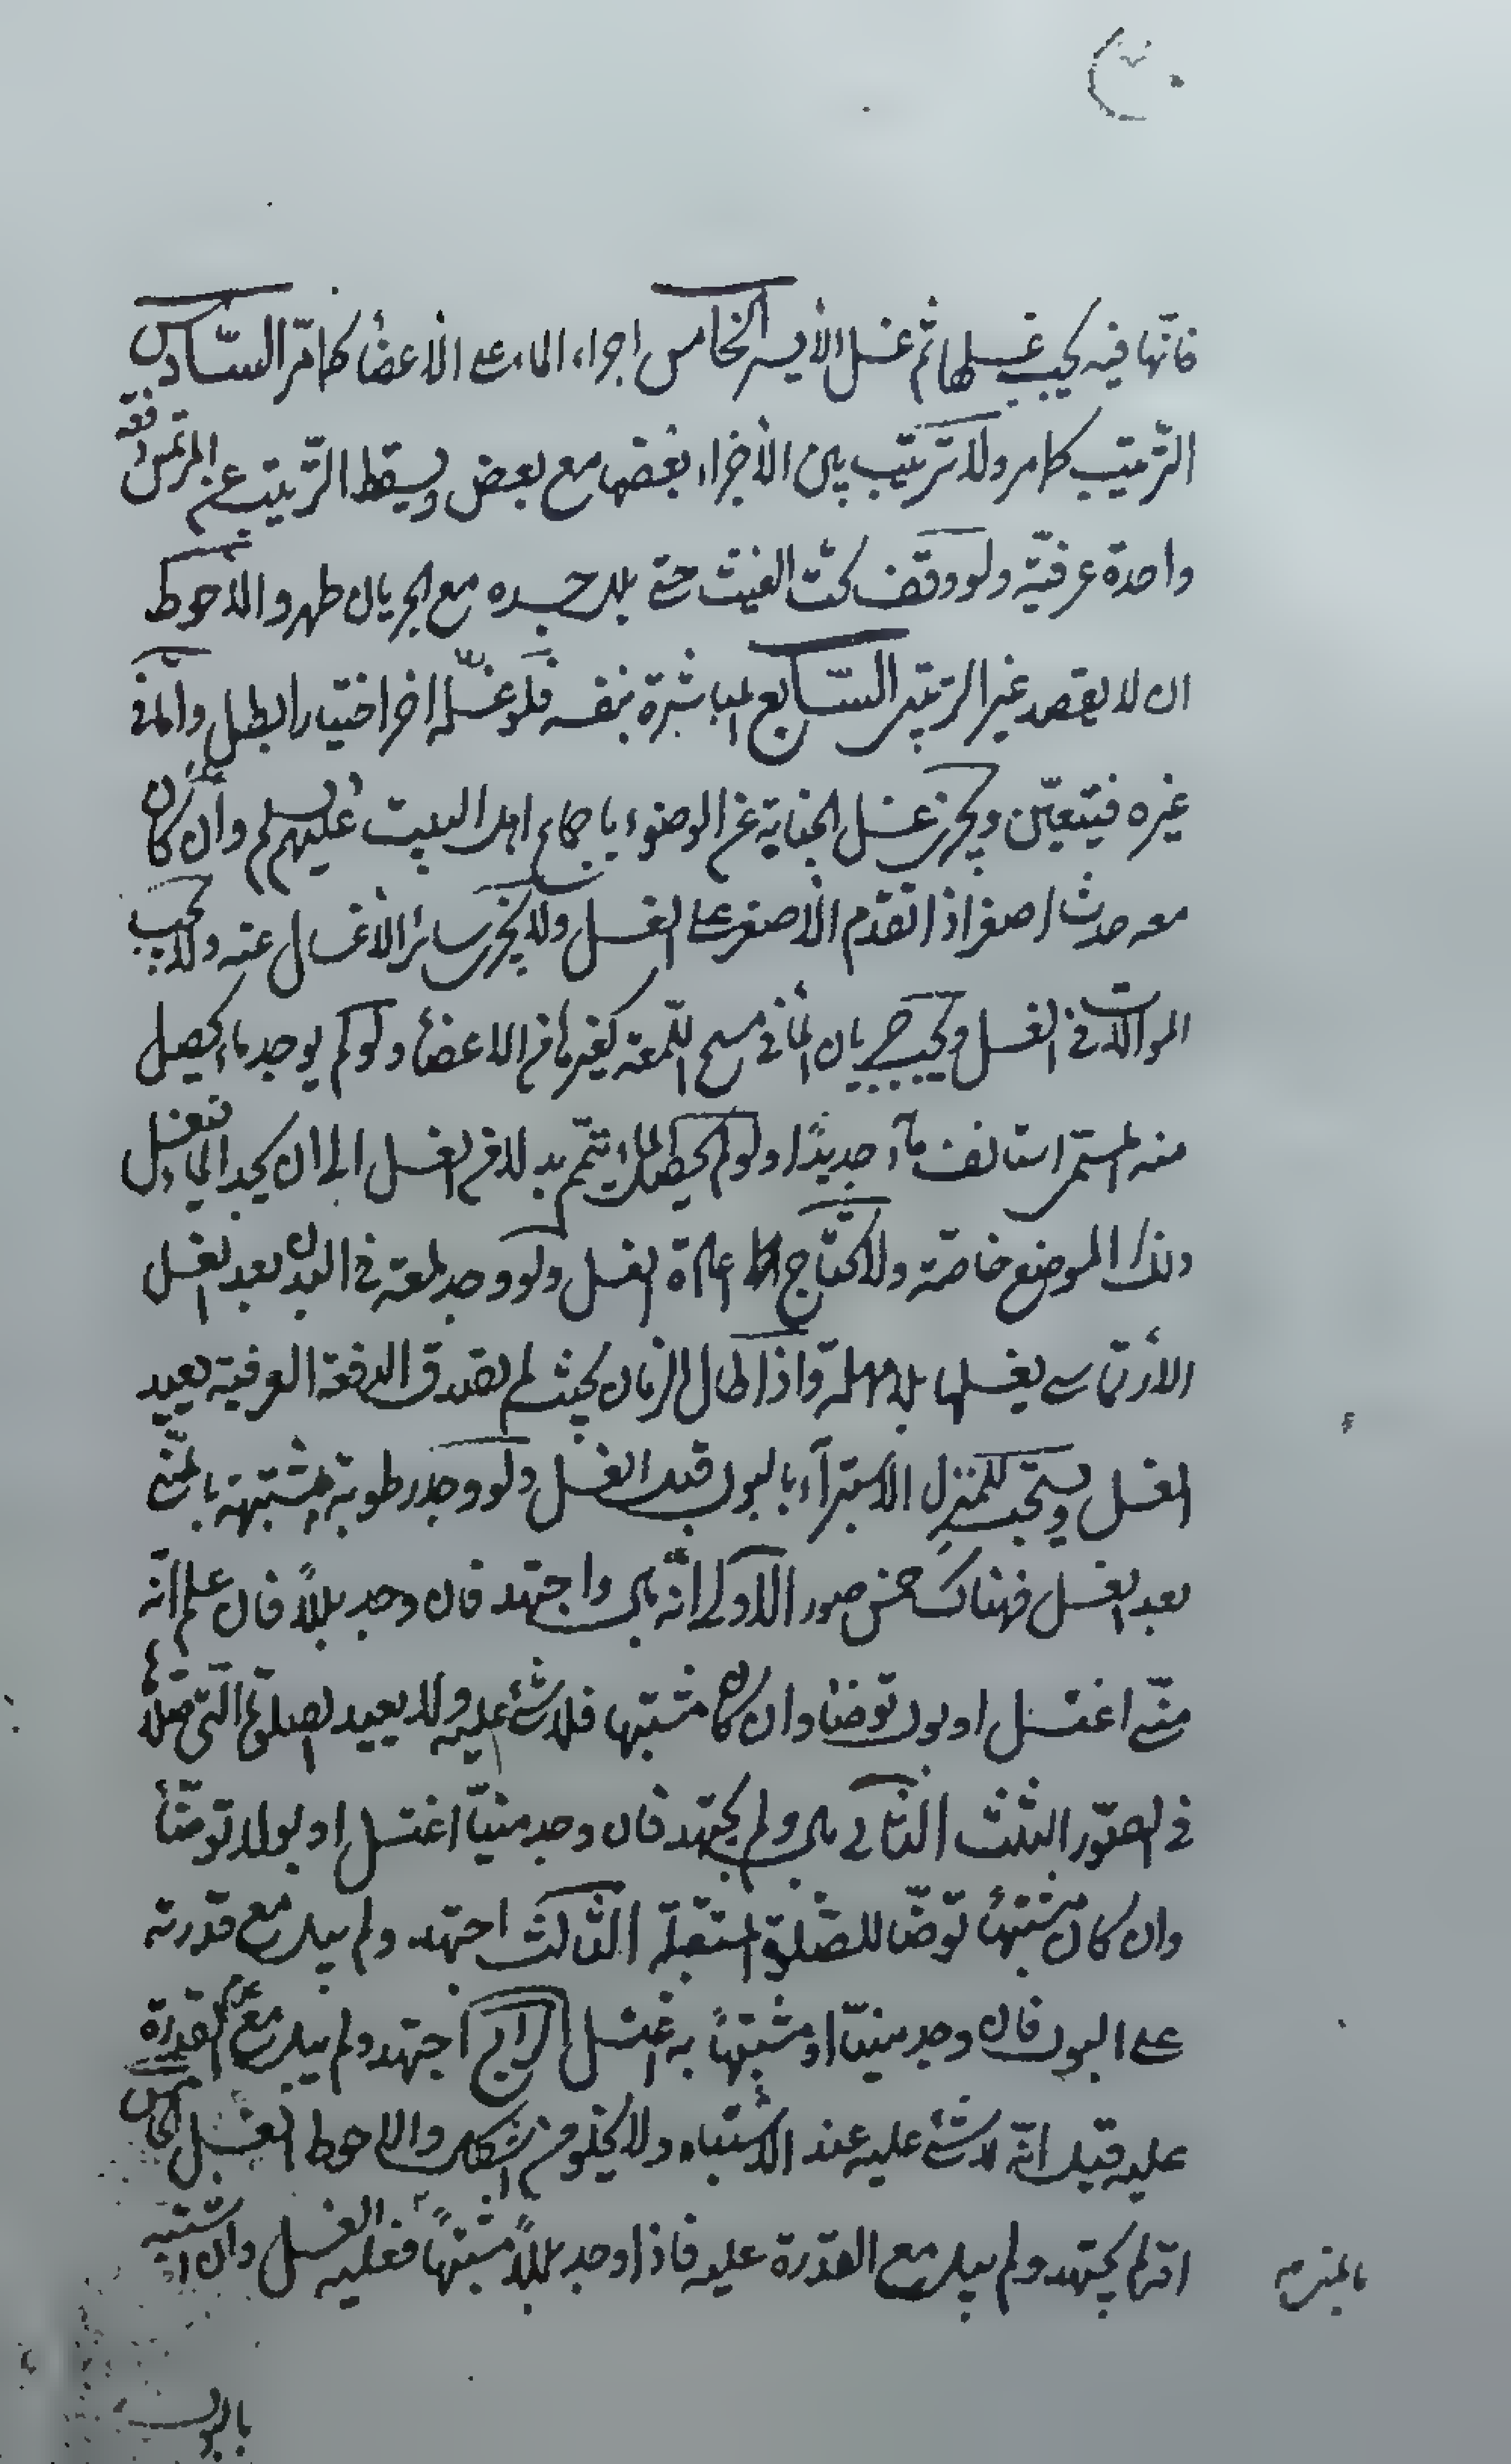 فانّها فيه يجب غسلها ثم غسل الأيسر الخامس اجراء الماء على الأعضاء كما مرّ السّادس
التّرتيب كما مر ولا ترتيب بين الأجزاء بعضها مع بعض ويسقط التّرتيب عن المرتمس دفعة
واحدة عرفيّة ولو وقف تحت الغيث حتى بلل جسده مع الجريان طهر والاحوط
ان لا يقصد غير الترتيبى السّابع المباشرة بنفسه فلو غسّله اخر اختيارا بطل وامّا فى
غيره فيتعيّن ويجزى غسل الجنابة عن الوضوء باجماع اهل البيت عليهم السلم وان كان
معه حدث اصغر اذا تقدم الأصغر على الغسل ولا يجزى سائر الأغسال عنه ولا يجب
الموالات فى الغسل ويجب جريان الماء فى مسح اللّمعة كغيرها من الاعضاء ولو لم يوجد ماء يحصل
منه المستمر استانف ماء جديدًا ولو لم يحصل الماء يتمّم بدلا من الغسل الى ان يجد الماء فيغسل
ذلك الموضع خاصّة ولا يحتاج الى اعادة الغسل ولو وجد لمعة فى البدن بعد الغسل
الأرتماسى يغسلها بلا مهلة واذا طال الزمان بحيث لم يصدق الدفعة العرفية يعيد
الغسل ويستحب للمنزل الأستبراء بالبول قبل الغسل ولو وجد رطوبة مشتبهة بالمنى
بعد الغسل فهناك خمس صور الاولى انّه بال واجتهد فان وجد بللاً فان علم انّه
منّى اغتسل او بول توضّا وان كان مشتبها فلا شئ عليه ولا يعيد الصلوة الّتى صلّاها
فى الصّور الثلث الثانى بال ولم يجتهد فان وجد منيّا اغتسل او بولا توضّأ
وان كان مشتبهاً توضّا للصّلوة المستقبلة الثالث اجتهد ولم يبل مع قدرته
على البول فان وجد منيّا او مشتبهاً به اغتسل الرابع اجتهد ولم يبل مع عدم القدرة
عليه قيل انّه لا شئ عليه عند الاشتباه ولا يخلو من اشكال والاحوط الغسل الخامس
انّه لم يجتهد ولم يبل مع القدرة عليه فاذا وجد بللاً مشتبهاً فعليه الغسل وان اشتبه
بالمنى
بالبول